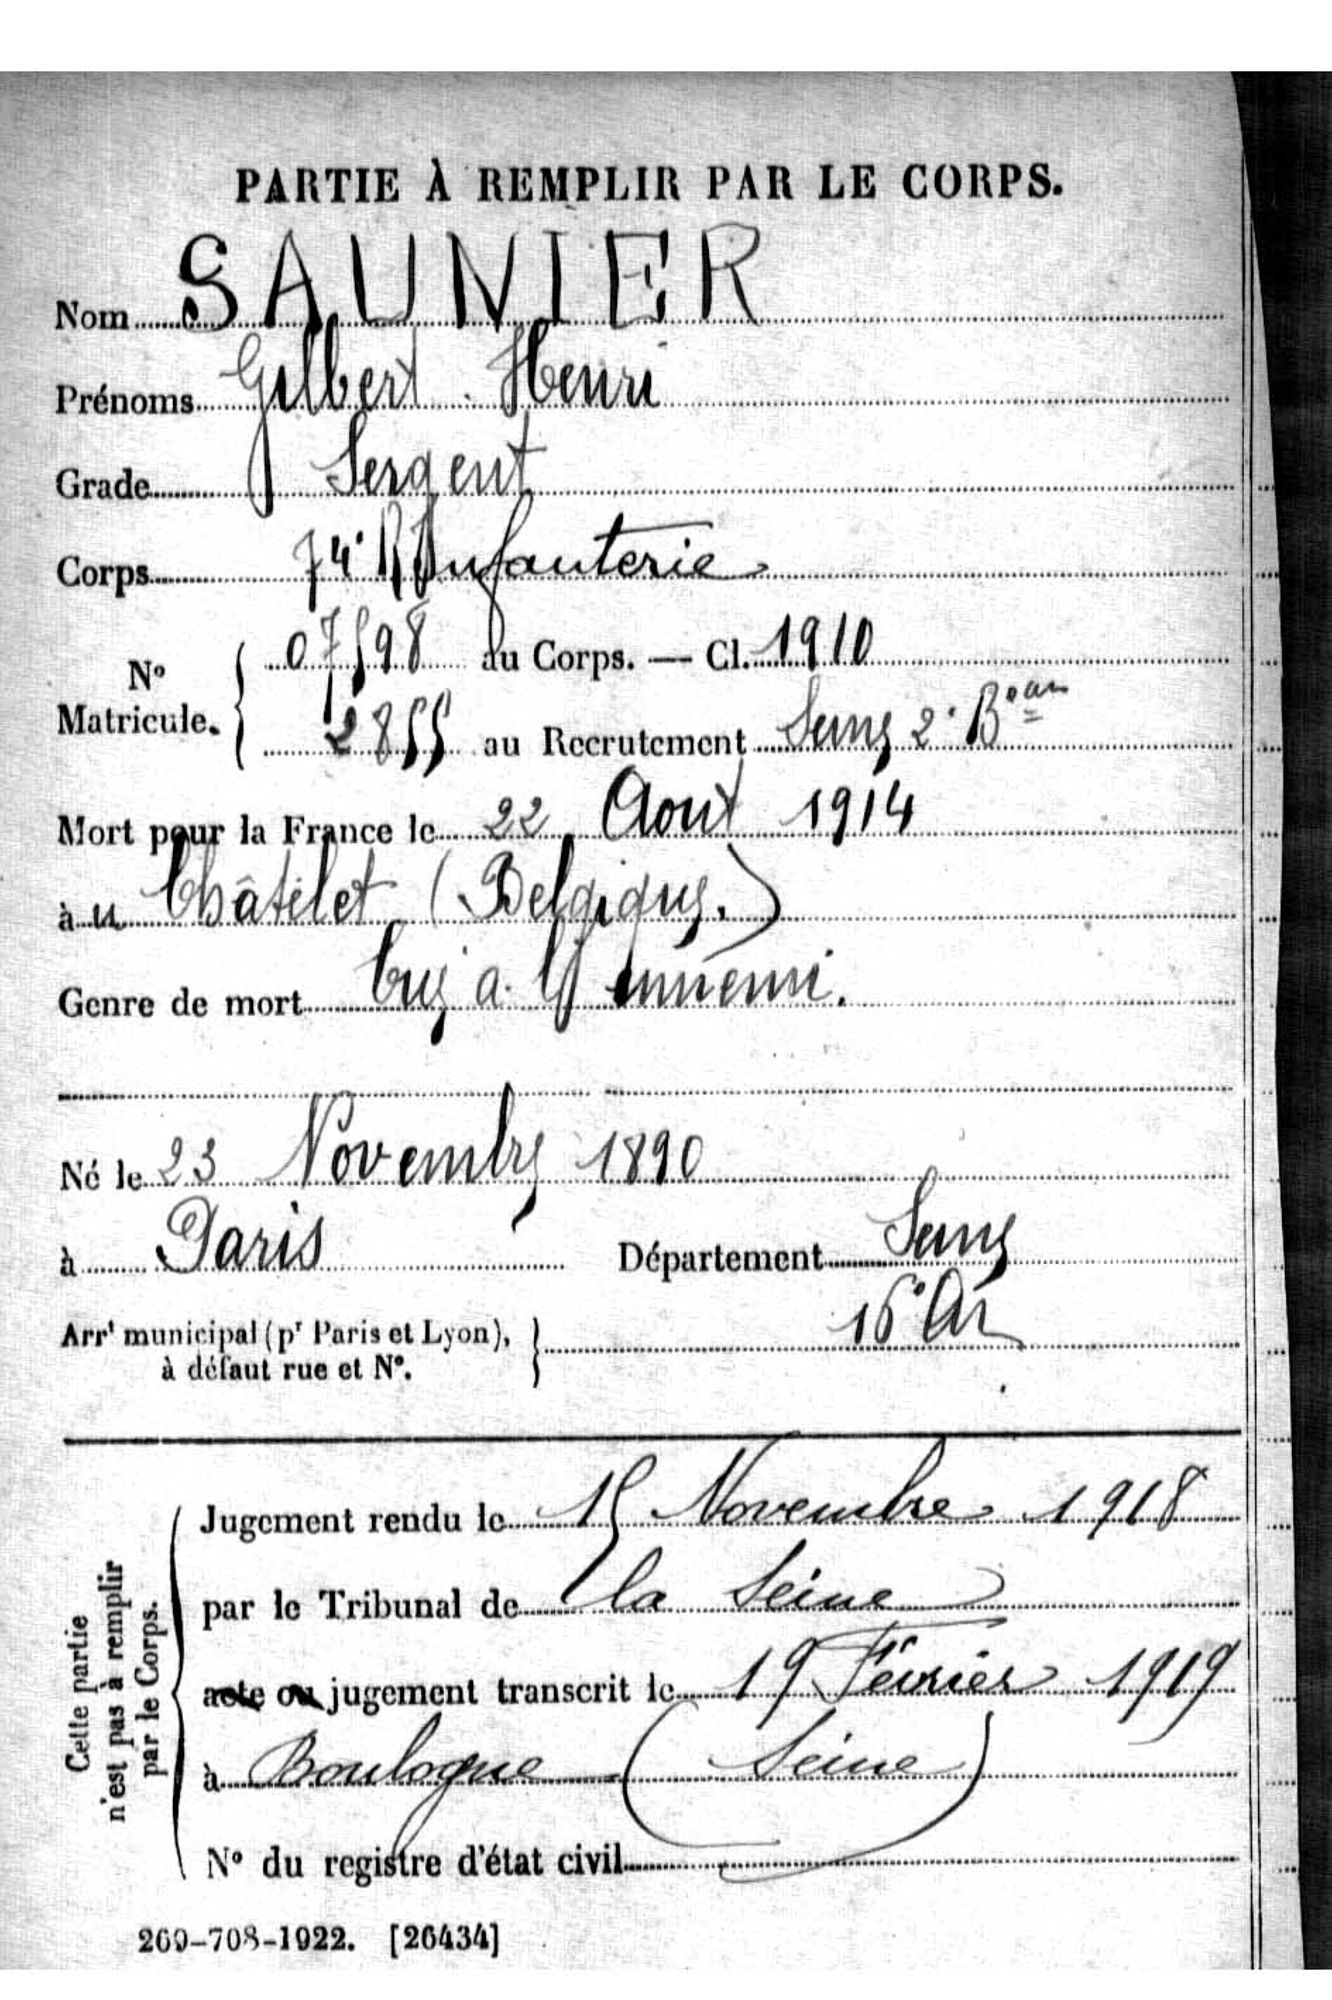 PARTIE À REMPLIR PAR LE CORPS.
Nom SAUNIER
Prénoms Gilbert Henri
Grade Sergent
Corps 74e R d'Infanterie
No Matricule. { 07598 au Corps. — Cl. 1910
2855 au Recrutement Seine 2e Beau
Mort pour la France le 22 Aout 1914
à u Châtelet (Belgique.)
Genre de mort Tué à l'ennemi.
Né le 23 Novembre 1890
à Paris Département Seine
Arrt municipal (pr Paris et Lyon), à défaut rue et No. } 16e Ar
Cette partie n'est pas à remplir par le Corps.
Jugement rendu le 15 Novembre 1918
par le Tribunal de la Seine
acte ou jugement transcrit le 19 Février 1919
à Boulogne (Seine)
No du registre d'état civil
269-708-1922. [26434]